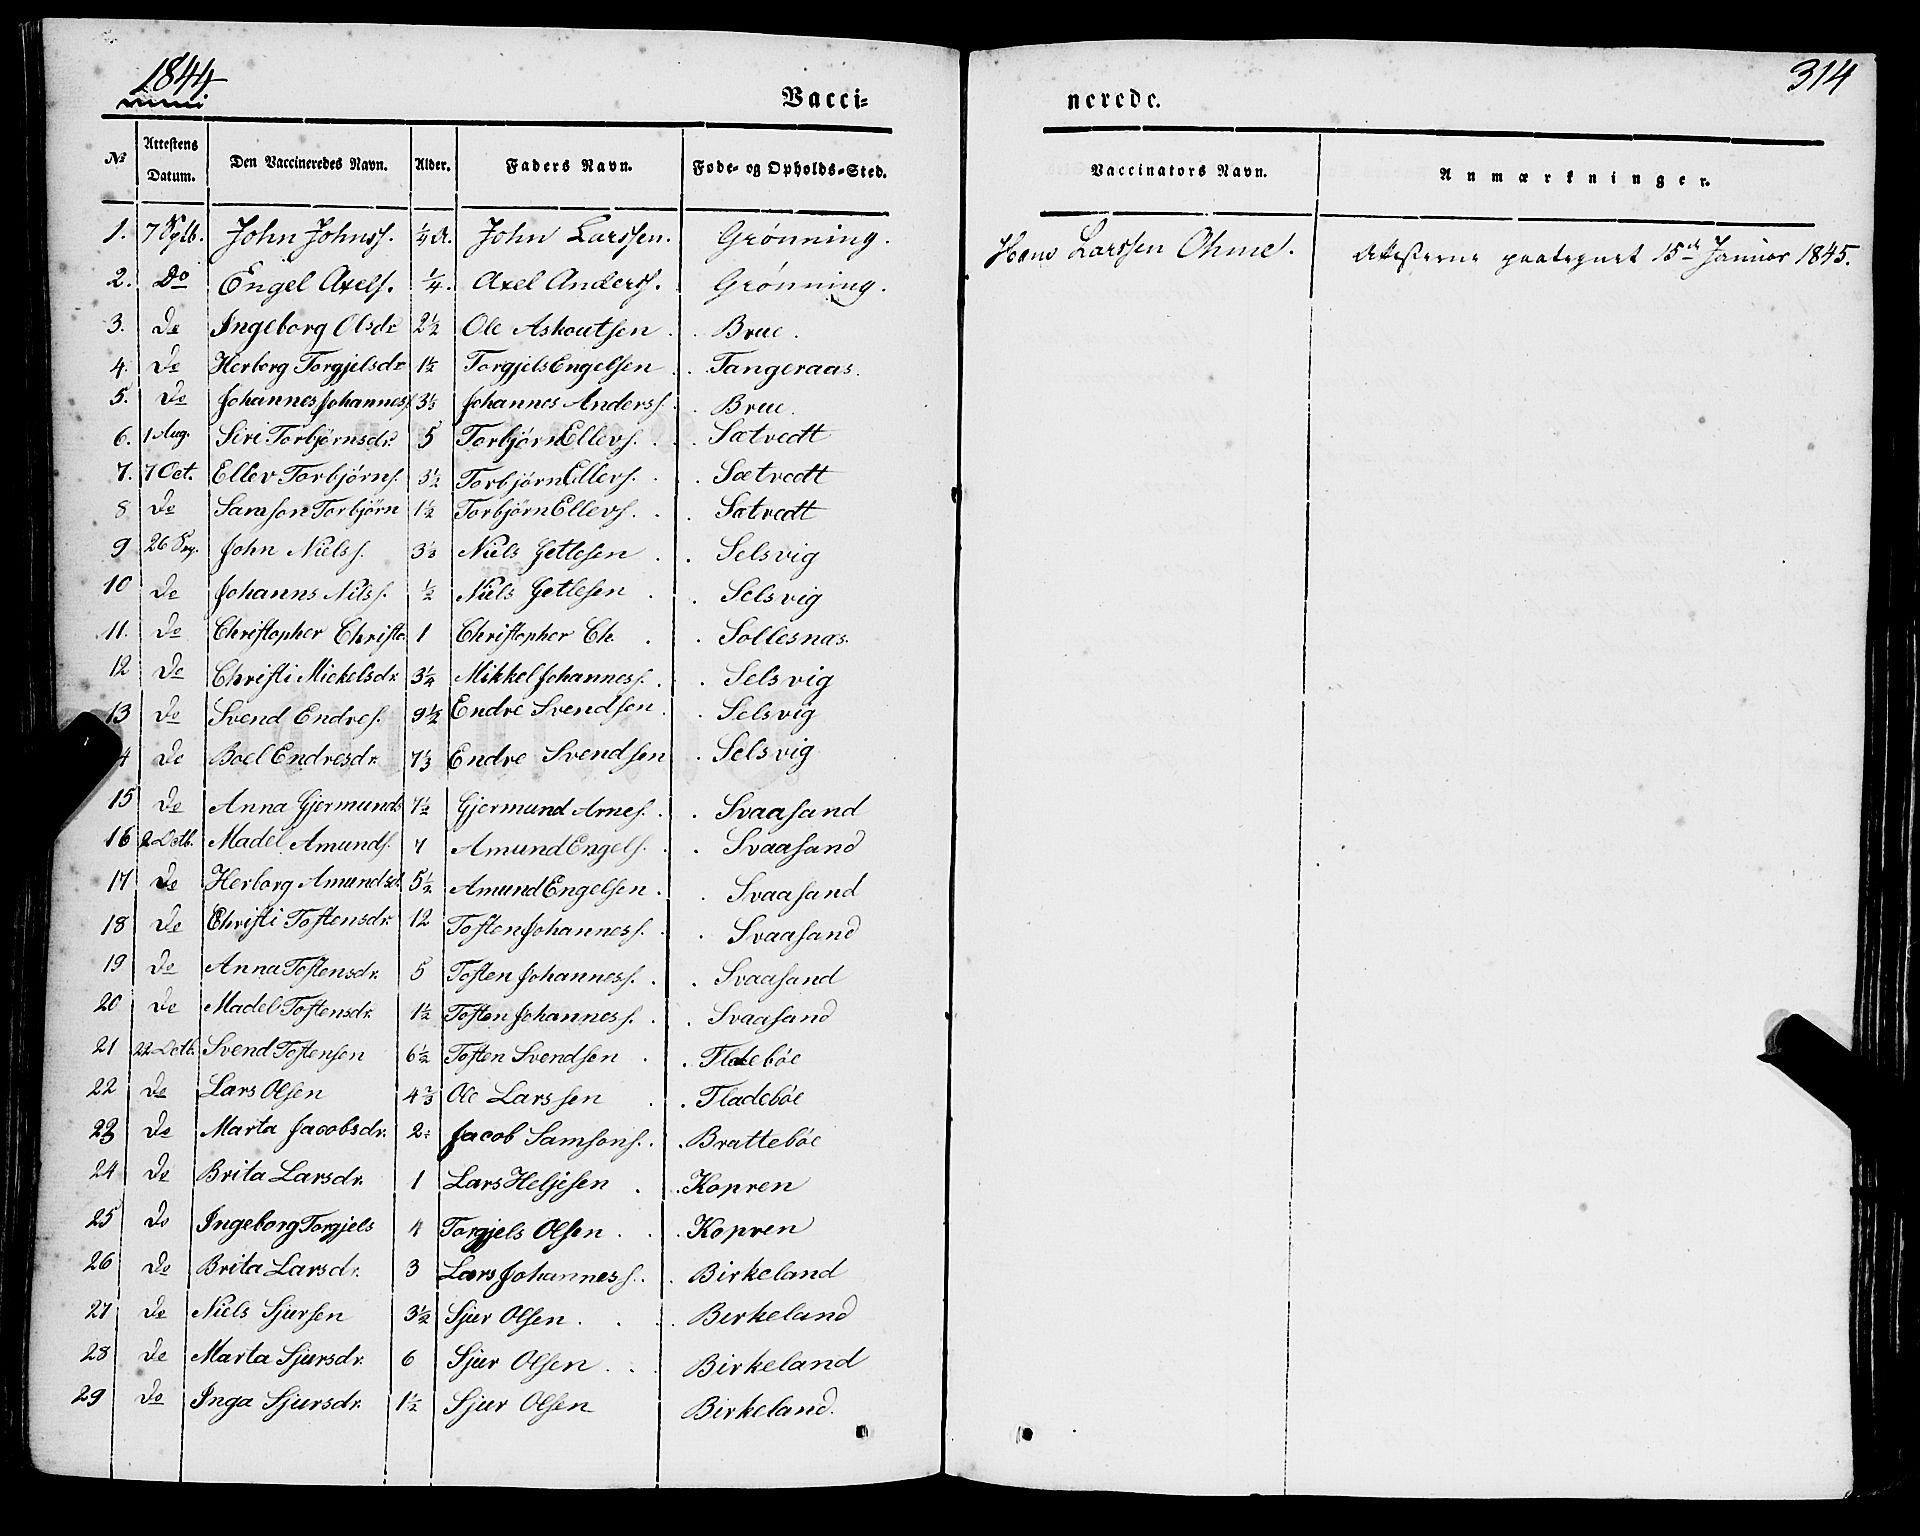 1844
314
Vacci- nerede.
No Attestens Datum. Den Vaccineredes Navn. Alder. Faders Navn. Føde- og Opholds-Sted. Vaccinators Navn. Anmærkninger.
1. 7 John Johnss. 1/4 A. John Larssen. Grønning. Larssen Ohme. Attesterne paategnet 15de Januar 1845.
2. Do Engel Axels. 1/4. Axel Anderss. Grønning.
3. Do Ingeborg Olsdr 2 1/2 Ole Askoutsen Brue.
4. Do Herborg Torgjelsdr 1 1/2 Torgjels Engelsen Tangeraas.
5. Do Johannes Johanness 3 1/3 Johannes Anderss. Brue.
6. 1 Aug. Siri Torbjørnsdr. 5 Torbjørn Ellevs. Sætvedt
7. 7 Oct. Ellev Torbjørns. 3 1/2 Torbjørn Ellevs. Sætvedt
8 Do Samson Torbjørn 1 1/2 Torbjørn Ellevs. Sætvedt
9 26 John Nielss. 3 1/3 Niels Jetlesen Selsvig
10 Do Johanns Nilss. 1/2 Niels Jetlesen Selsvig
11. Do Christopher Christo. 1 Christopher Ch. Sollesnas.
12 Do Christi Mickelsdr. 3 1/4 Mikkel Johanness. Selsvig
13 Do Svend Endres. 9 1/2 Endre Svendsen Selsvig
4 Do Boel Endresdr. 7 1/3 Endre Svendsen Selsvig
15 Do Anna Gjermunds 7 1/2 Gjermund Arnes. Svaasand
16 2 Octb. Madel Amunds. 7 Amund Engels. Svaasand
17 Do Herborg Amundsd. 5 1/2 Amund Engelsen. Svaasand
18 Do Christi Tostensdr. 12 Tosten Johanness. Svaasand
19 Do Anna Tostensdr. 5 Tosten Johanness. Svaasand
20 Do Madel Tostensdr. 1 1/2 Tosten Johanness. Svaasand
21 22 Octb. Svend Tostensen 6 1/2 Tosten Svendsen Fladebøe
22 Do Lars Olsen 4 2/3 Ole Larssen Fladebøe
23 Do Marta Jacobsdr. 2 Jacob Samsons. Brattebøe
24 Do Brita Larsdr. 1 Lars Heljesen Kopren
25 Do Ingeborg Torgjels 4 Torgjels Olsen Kopren
26 Do Brita Larsdr. 3 Lars Johanness. Birkeland
27 Do Niels Sjursen 3 1/2 Sjur Olsen. Birkeland
28 Do Marta Sjursdr. 6 Sjur Olsen Birkeland
29 Do Inga Sjursdr. 1 1/2 Sjur Olsen Birkeland.